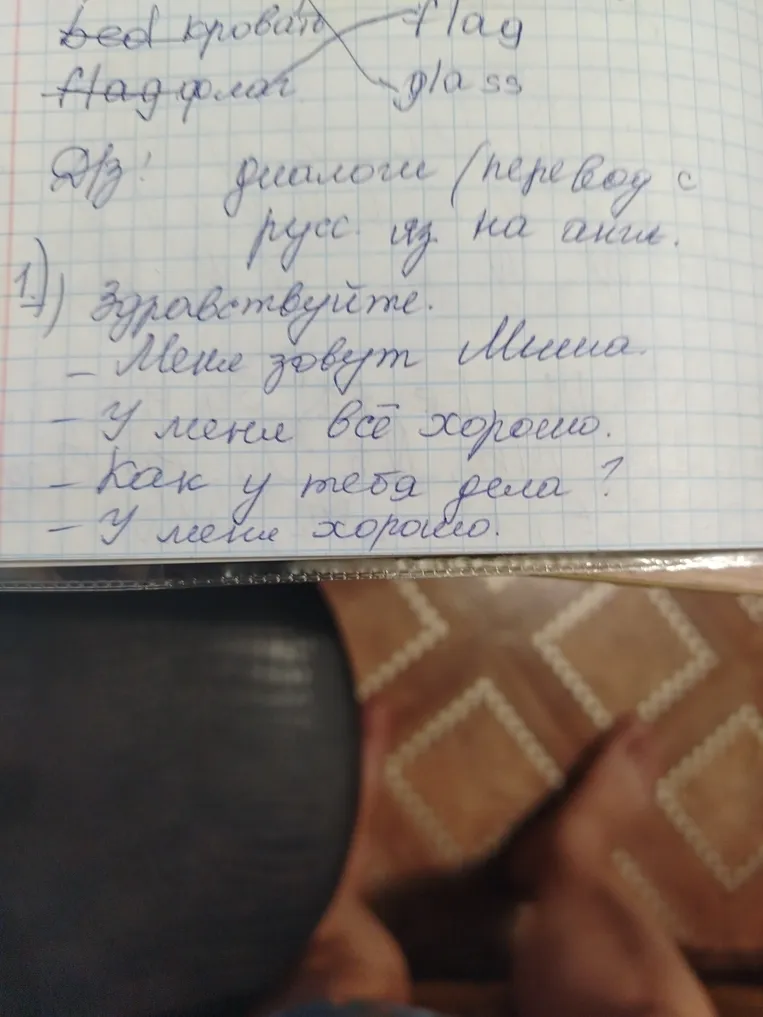 bed кровать flag
flag флаг glass
Д/З: диалоги (перевод с
русс. яз. на англ.
1.) Здравствуйте.
- Меня зовут Миша.
- У меня всё хорошо.
- Как у тебя дела?
- У меня хорошо.